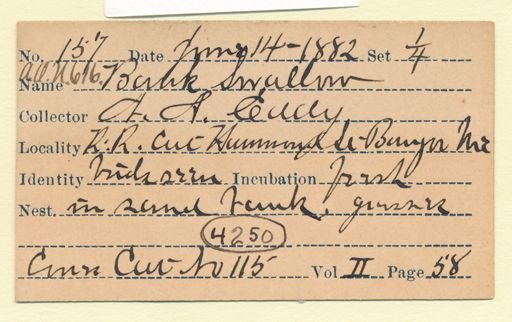 No. 157 Date June 14-1882 Set 1/4
A.O.U. 616.
Name Bank Swallow
Collector A. A. Eddy
Locality R.R. Cut Hammond St-Bangor Me
Identity birds seen Incubation fresh
Nest. in sand bank. grasses
4250
Cut No 115 Vol II Page 58